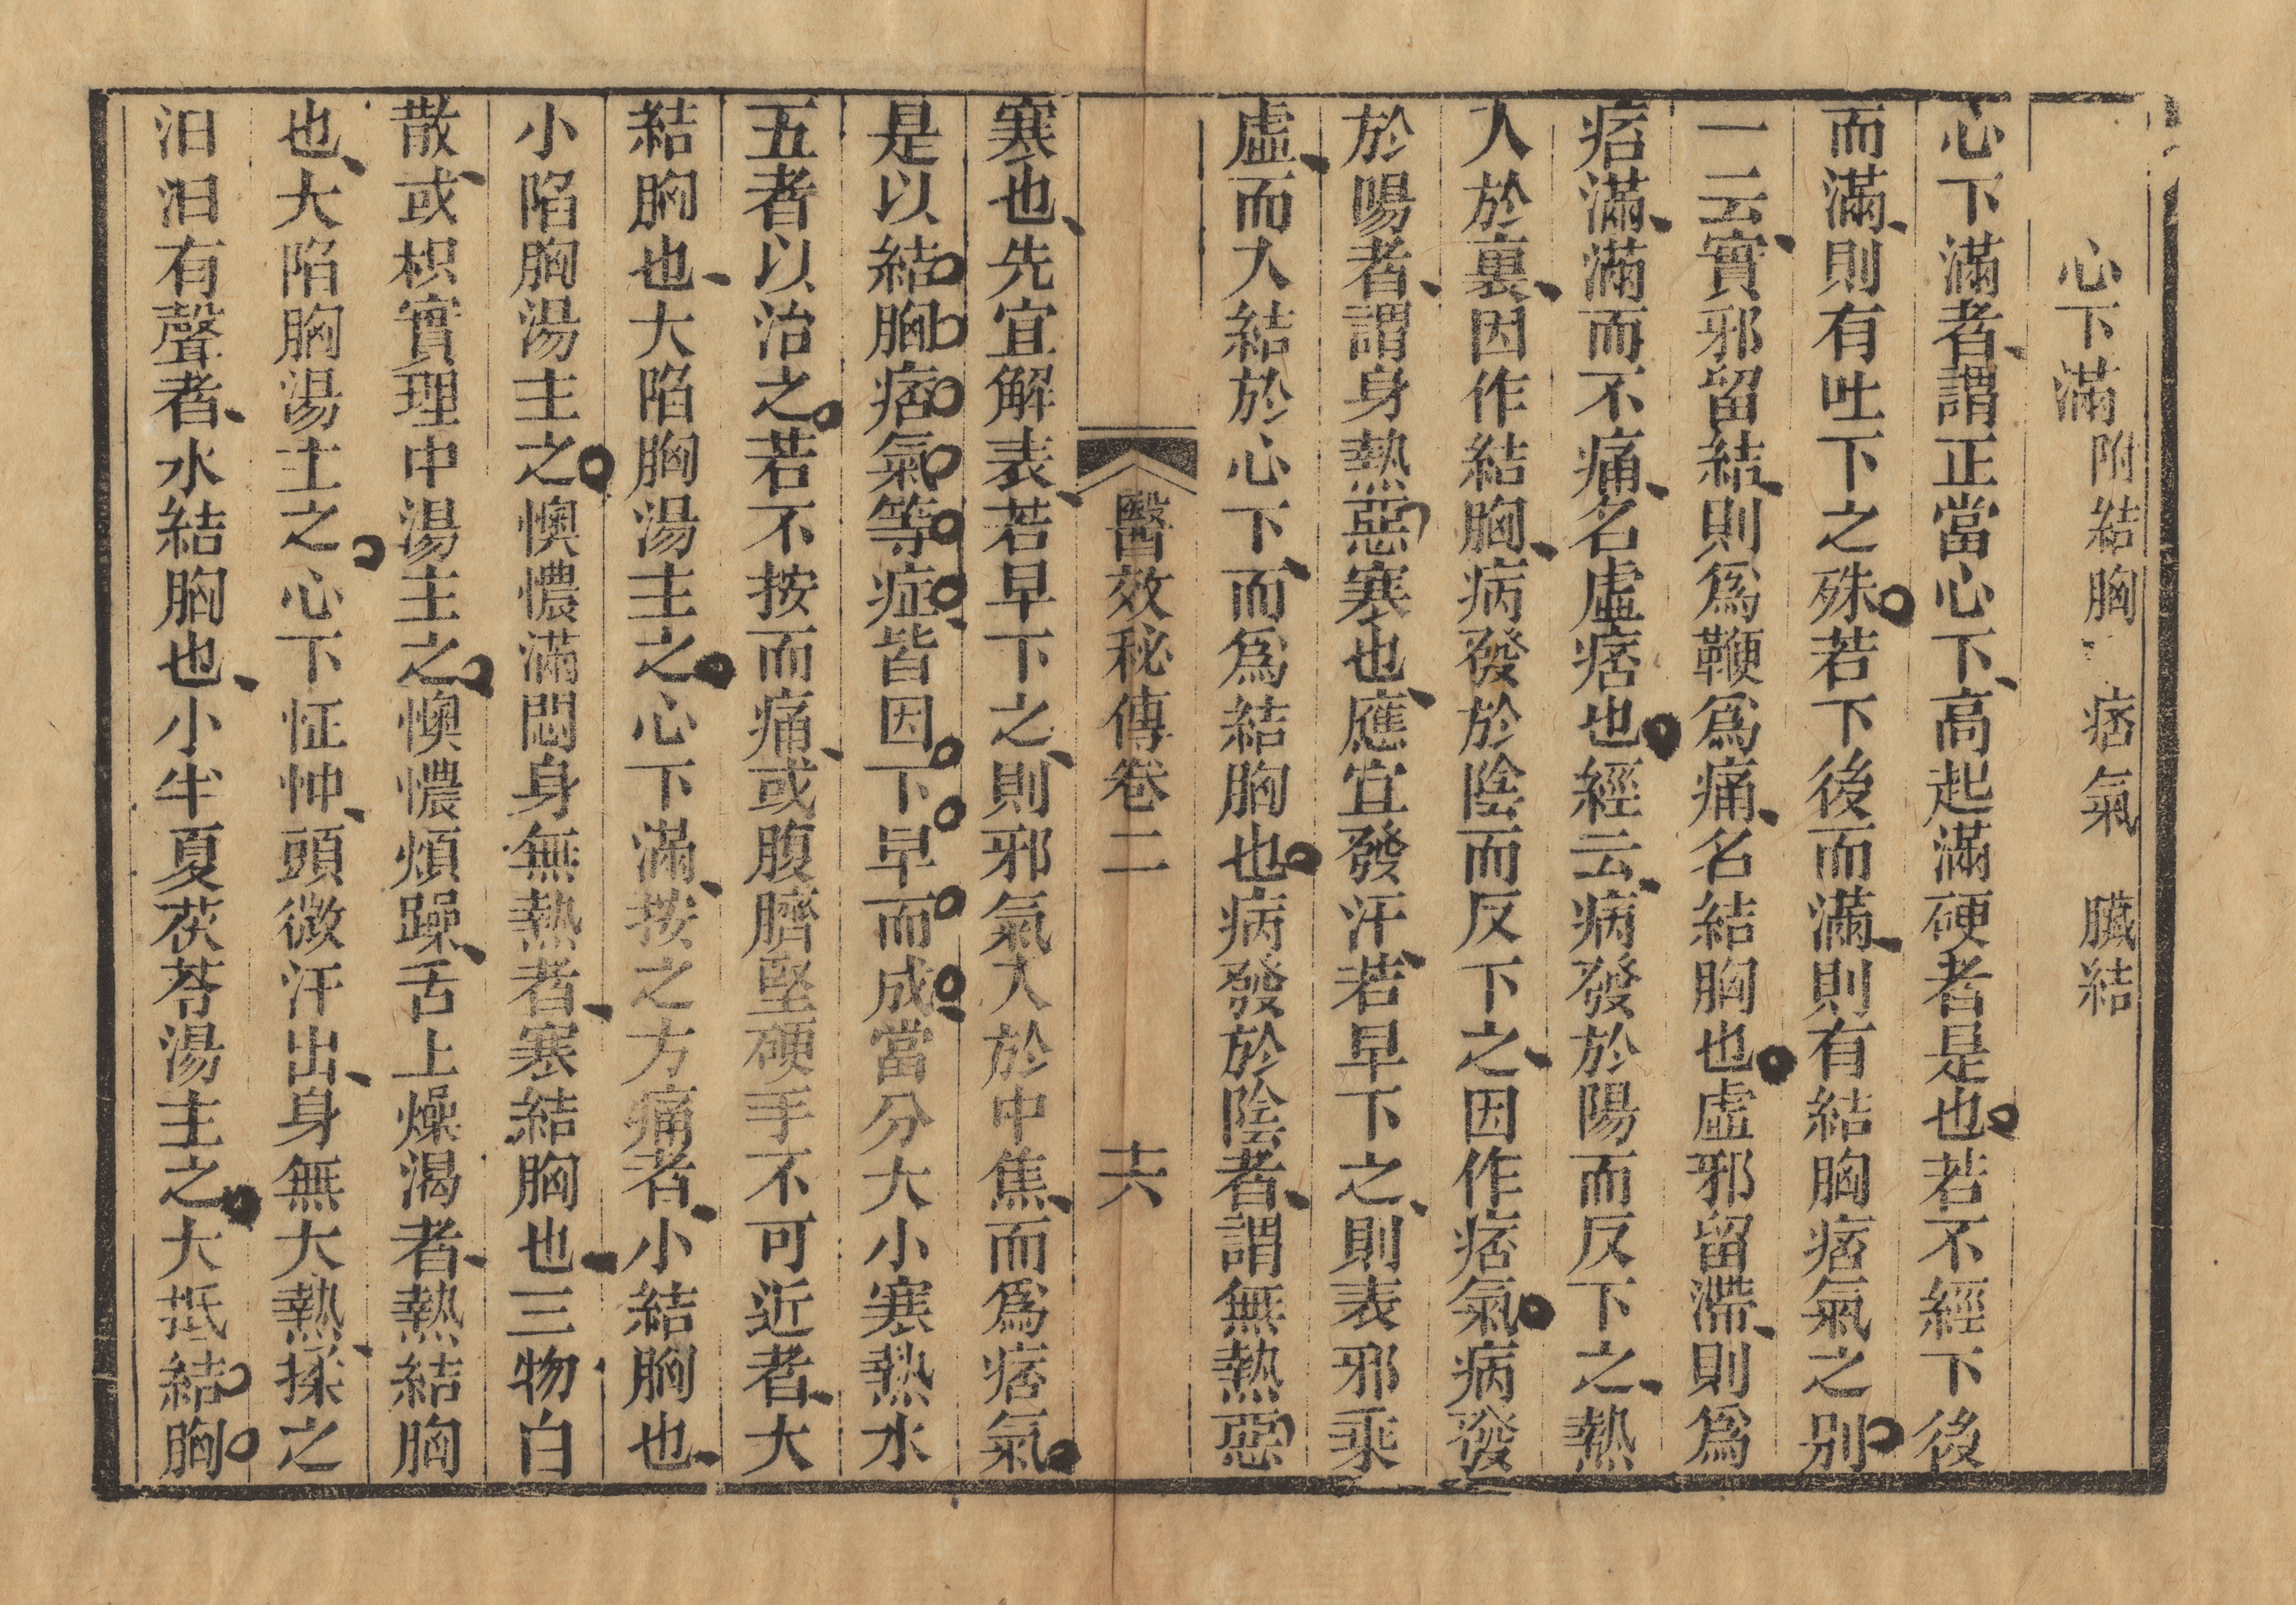 心下滿附結胸 痞氣 臟結
心下滿者謂正當心下高起滿硬者是也若不經下後
而滿則有吐下之殊若下後而滿則有結胸痞氣之別
一云實邪留結則爲鞕爲痛名結胸也虛邪留滯則爲
痞滿滿而不痛名虛痞也經云病發於陽而反下之熱
入於裏因作結胸病發於陰而反下之因作痞氣病發
於陽者謂身熱惡寒也應宜發汗若早下之則表邪乘
虛而入結於心下而爲結胸也病發於陰者謂無熱惡
醫效秘傳卷二 十六
寒也先宜解表若早下之則邪氣入於中焦而爲痞氣
是以結胸痞氣等症皆因下早而成當分大小寒熱水
五者以治之若不按而痛或腹臍堅硬手不可近者大
結胸也大陷胸湯主之心下滿按之方痛者小結胸也
小陷胸湯主之懊憹滿悶身無熱者寒結胸也三物白
散或枳實理中湯主之懊憹煩躁舌上燥渴者熱結胸
也大陷胸湯主之心下怔忡頭微汗出身無大熱揉之
汩汩有聲者水結胸也小半夏茯苓湯主之大抵結胸